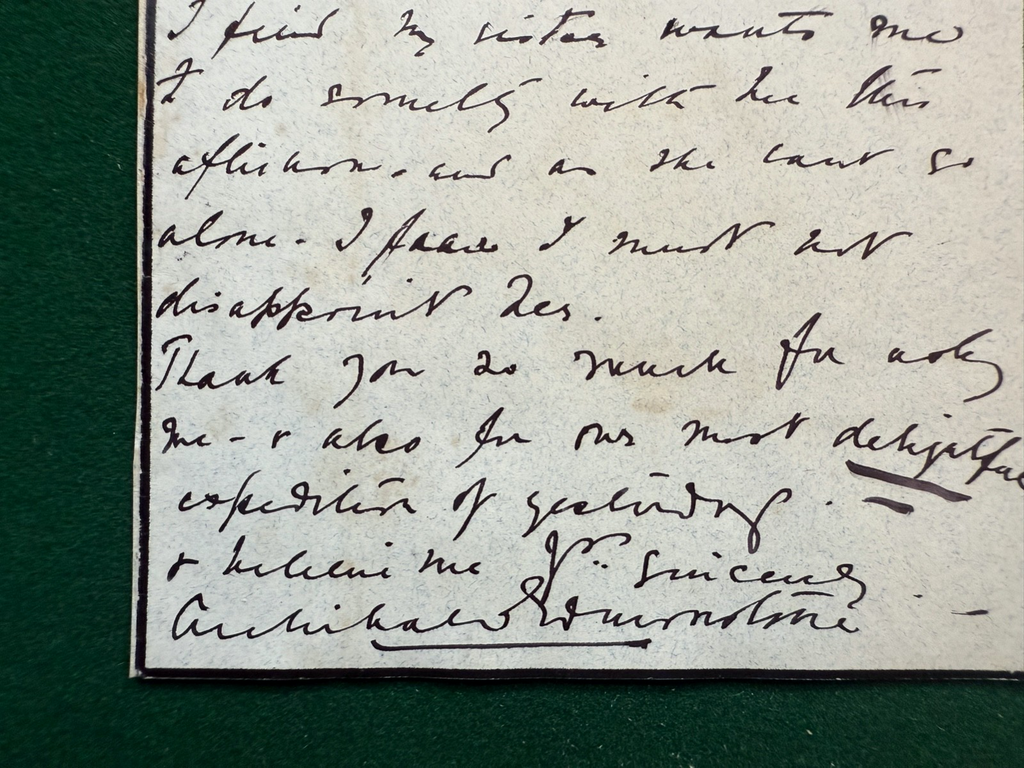 I find my sister wants me
to do something with her this
afternoon - and as she can't go
alone - I fear I must not
disappoint her.
Thank you so much for asking
me - & also for our most delightful
expedition of yesterday.
& believe me Yrs. Sincerely
Archibald Edmonstone